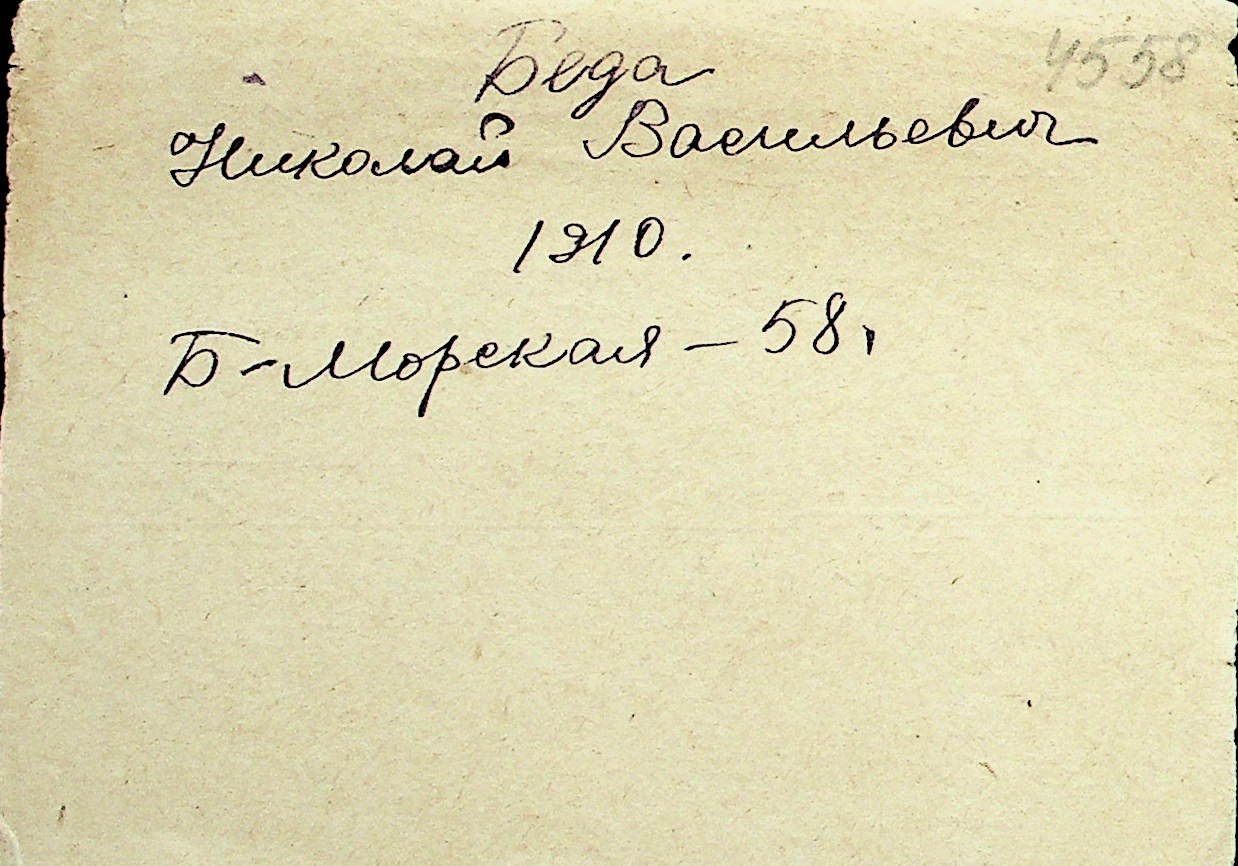 4558
Беда
Николай Васильевич
1910.
Б-Морская - 58,